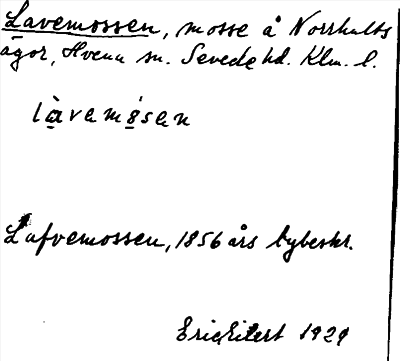 Lavemossen, mosse å Norrhults
ägor, Hvena sn. Sevede hd. Klm. l.
làvemósen
Lafvemossen, 1856 års bybeskr.
Eric Eilert 1929